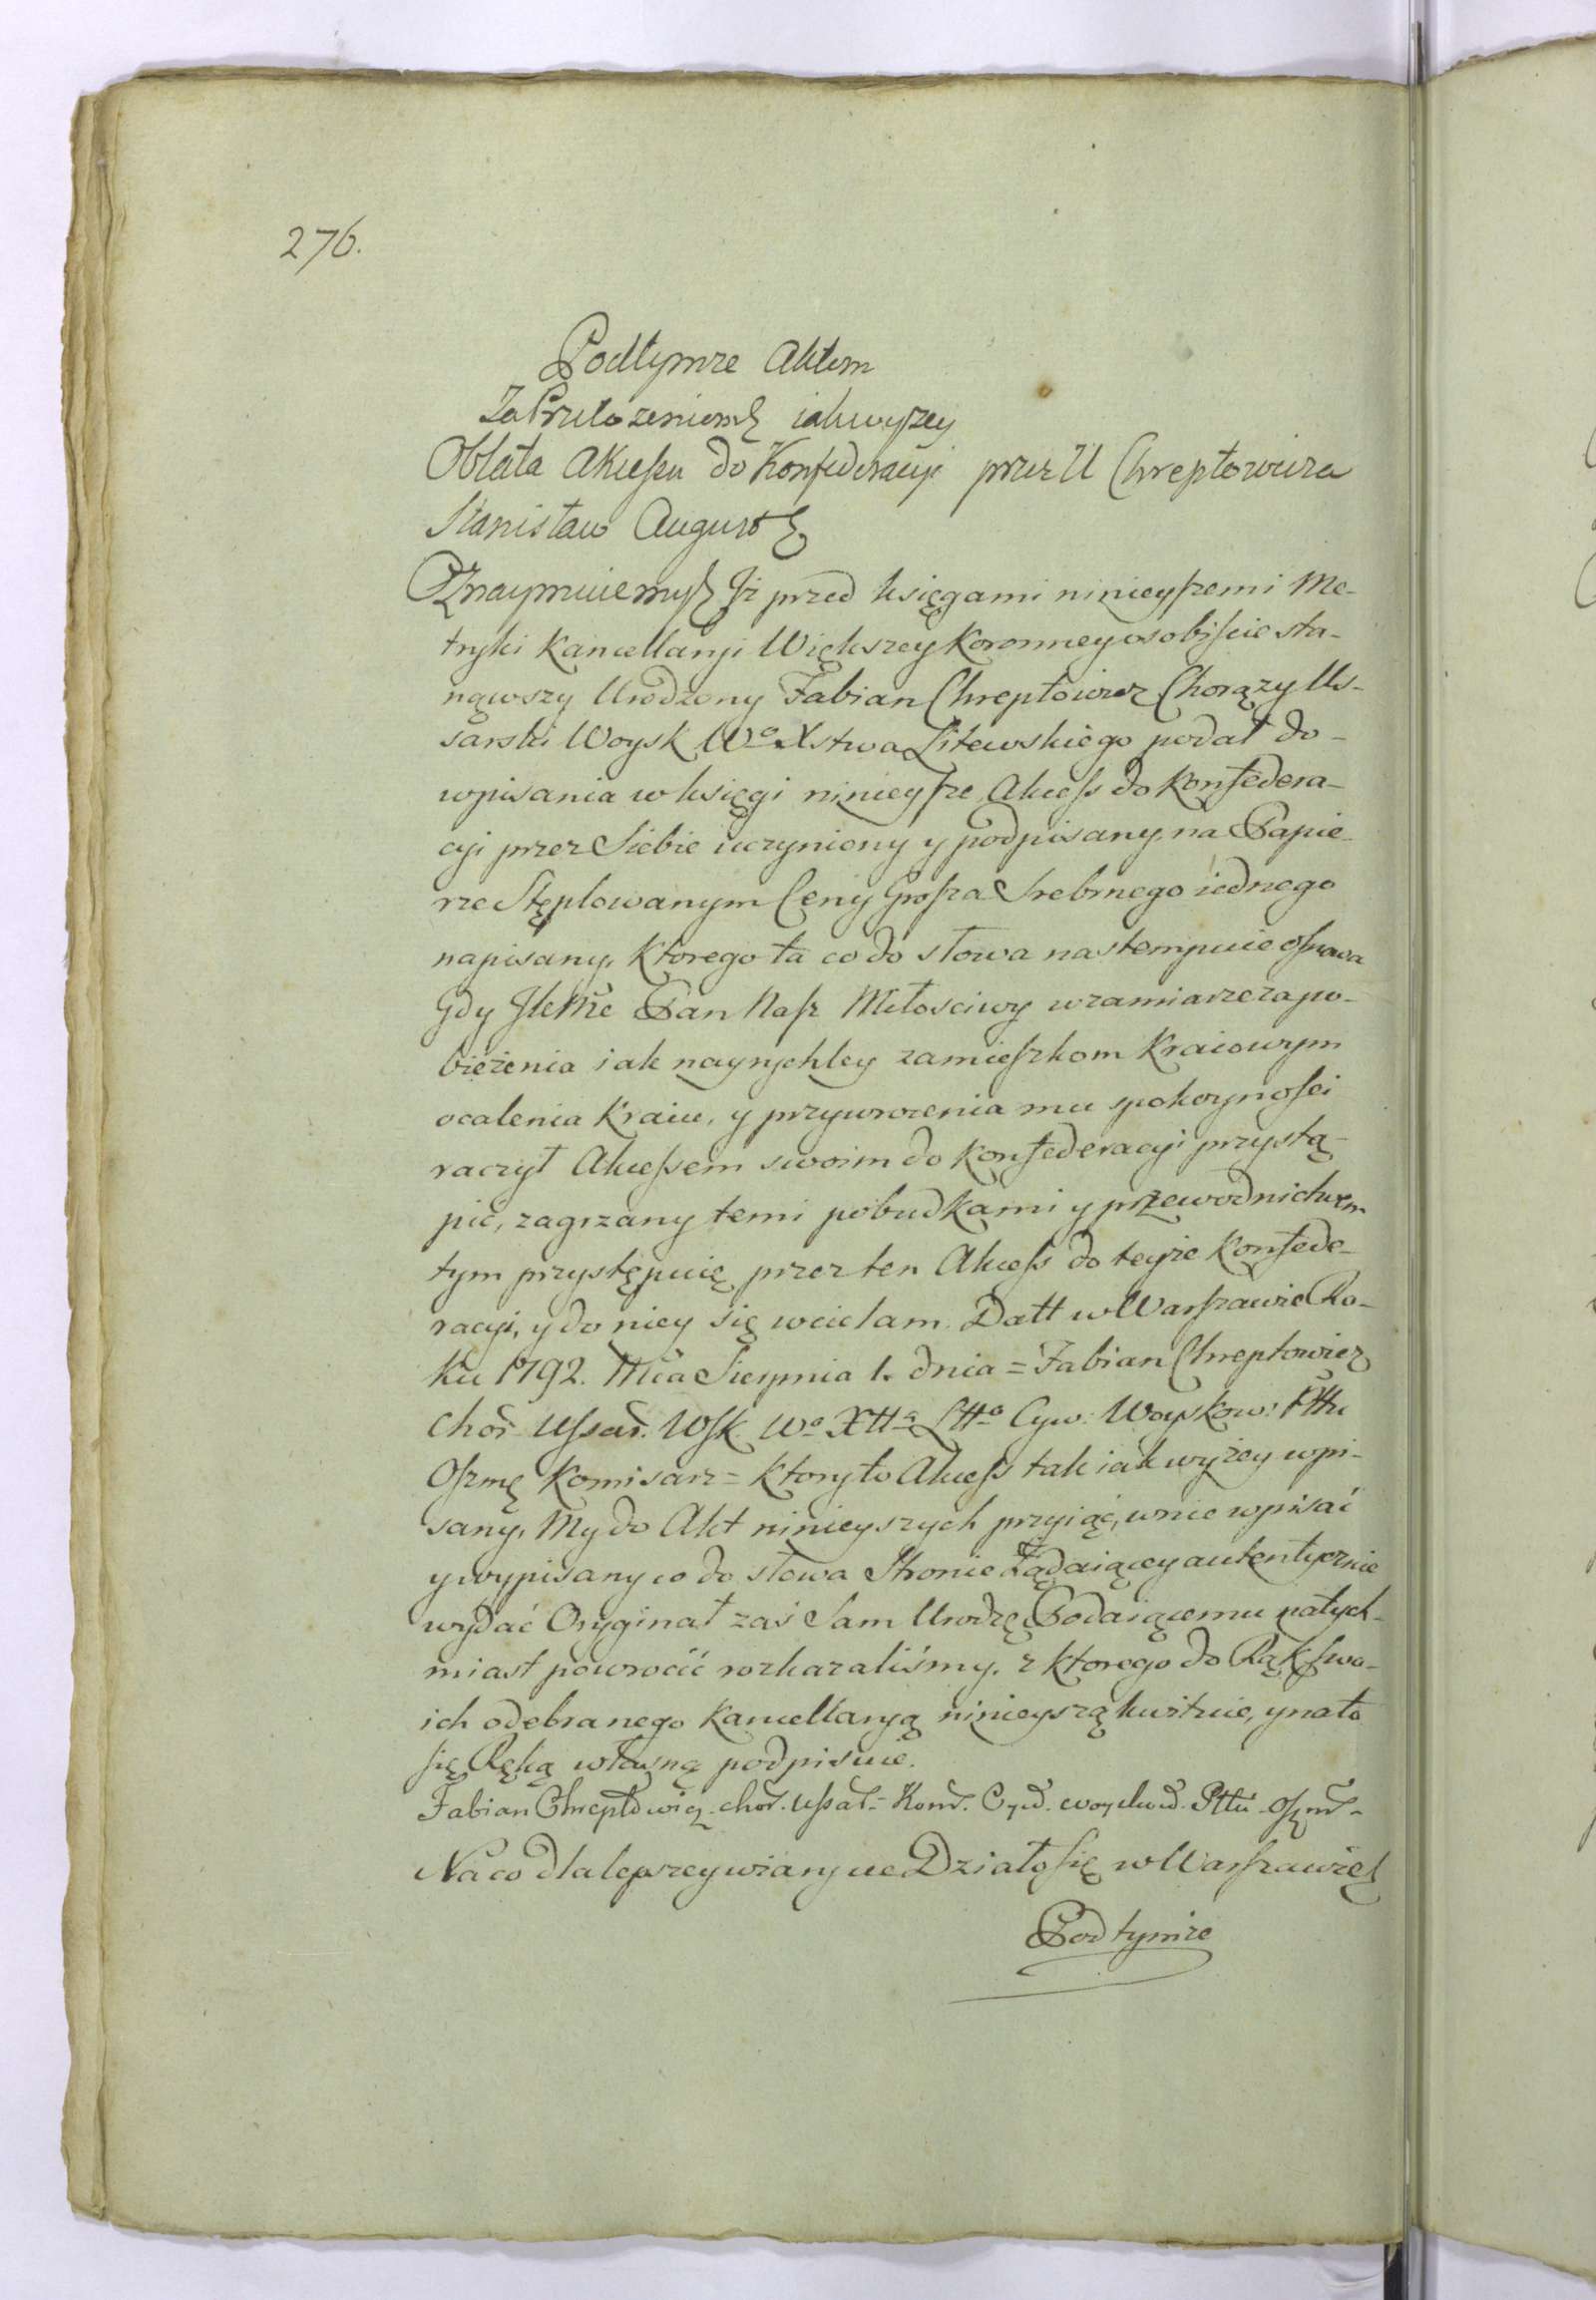 276.
Podtymże Aktem
Za Przełożeniem jakwyżey
Oblata Akcessu do Konfederacyi przez U Chreptowicza
Stanisław August
Oznaymuiemy Iż przed księgami ninieyszemi Me-
tryki Kancellaryi Większey Koronney osobiście sta-
nąwszy Urodzony Fabian Chreptowicz Chorąży Us-
sarski Woysk Wo Xstwa Litewskiego podał do-
wpisania w księgi ninieysze Akcess do Konfedera-
cyi przez Siebie uczyniony y podpisany, na Papie-
rze Stęplowanym Ceny Grosza Srebrnego iednego
napisany, ktorego ta co do słowa nastempuie osnowa
Gdy JKMć Pan Nasz Miłosciwy w zamiarze zapo-
bieżenia iak nayrychley zamieszkom Kraiowym
ocalenia Kraiu, y przywrocenia mu spokoynosci
raczył Akcessem swoim do Konfederacyi przystą-
pić, zagrzany temi pobudkami y przewodnictwem
tym przystępuię przez ten Akcess do teyże Konfede-
racyi, y do niey się wcielam. Datt w Warszawie Ro-
ku 1792. Mca Sierpnia 1. dnia = Fabian Chreptowicz
Chor. Ussar. Wsk. Wo XttaLtto Cyw: Woyskow: Pttu
Oszmę Komisarz = ktoryto Akcess tak iak wyżey wpi-
sany, My do Akt ninieyszych przyiąć, w nie wpisać
y wypisany co do słowa Stronie Żądaiącey autentycznie
wydać Oryginał zaś Sam Urodzę Podaiącemu natych-
miast powrócić rozkazaliśmy. z ktorego do Rąk swo-
ich odebranego Kancellaryą ninieyszą kwituie, y na to
się Ręką własną podpisuie.
Fabian Chreptowicz chor. ussar. Kom. Cyw. woyskow. Pttu Oszm.
Na co dla lepszey wiary ue Działo się w Warszawie
Pod tymże